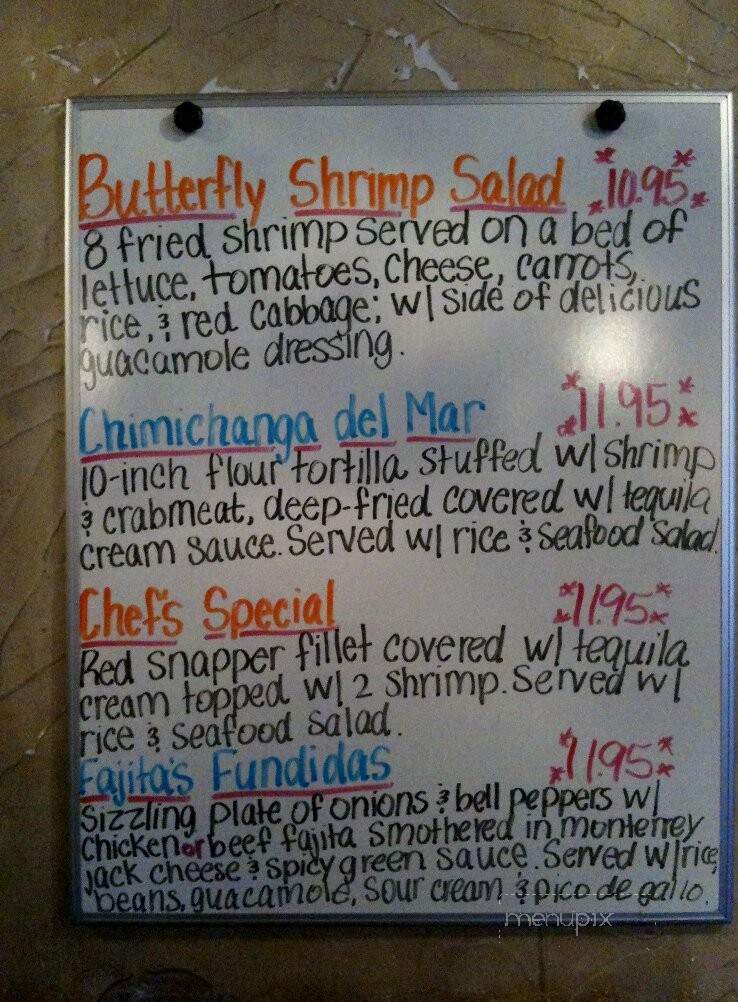 Butterfly Shrimp Salad *10.95*
8 fried shrimp served on a bed of
lettuce, tomatoes, cheese, carrots,
rice, & red cabbage; w/ side of delicious
guacamole dressing.
Chimichanga del Mar *11.95*
10-inch flour tortilla stuffed w/ shrimp
& crabmeat, deep-fried covered w/ tequila
cream sauce. Served w/ rice & seafood salad.
Chef's Special *11.95*
Red snapper fillet covered w/ tequila
cream topped w/ 2 shrimp. Served w/
rice & seafood salad.
Fajita's Fundidas *11.95*
Sizzling plate of onions & bell peppers w/
chicken or beef fajita smothered in monterrey
jack cheese & spicy green sauce. Served w/ rice,
beans, guacamole, sour cream & pico de gallo.
menupix